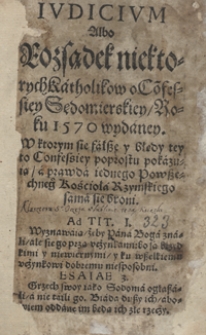 IVDICIVM
Albo
Rozsądek niekto-
rych Kátholikow o Cōfes-
siey Sędomierskiey / Ro-
ku 1570 wydaney.
W ktorym sie fałsze y błędy tey
to Confessiey poprostu pokázu-
ią / á prawdá iednego Powsze-
chneg Kościołá Rzymskiego
sámá sie broni.
323
Ad TIT. I.
Wyznawáią żeby Páná Bogá zná-
li / ále sie go przą vczynkámi
kimi y niewiernimi / y ku wszelkiemu
vczynkowi dobremu niesposobni.
ESAIAE 3.
Grzech swoy iáko Sodomá ogłaszá-
li / á nie táili go. Biádá duszy ich / ábo-
wiem oddáne im będą ich złe rzeczy.